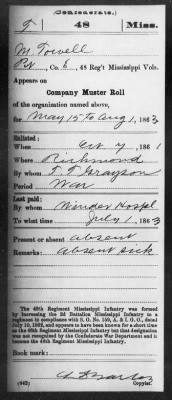 (Confederate.)
T 48 Miss.
M. Towell
Pvt, Co. E, 48 Reg't Mississippi Vols.
Appears on
Company Muster Roll
of the organization named above,
for May 15 to Aug 1, 1863
Enlisted:
When Oct 7, 1861
Where Richmond
By whom T. T. Grayson
Period War
Last paid:
By whom Winder Hospl
To what time July 1, 1863
Present or absent absent
Remarks: absent sick
The 48th Regiment Mississippi Infantry was formed
by increasing the 2d Battalion Mississippi Infantry to a
regiment in compliance with S. O. No. 
July 10, 1862, and appears to have been known for a short time
as the 48th Regiment Mississippi Infantry but that designation
was not recognized by the Confederate War Department and it
became the 48th Regiment Mississippi Infantry.
Book mark:
(642) Copyist.